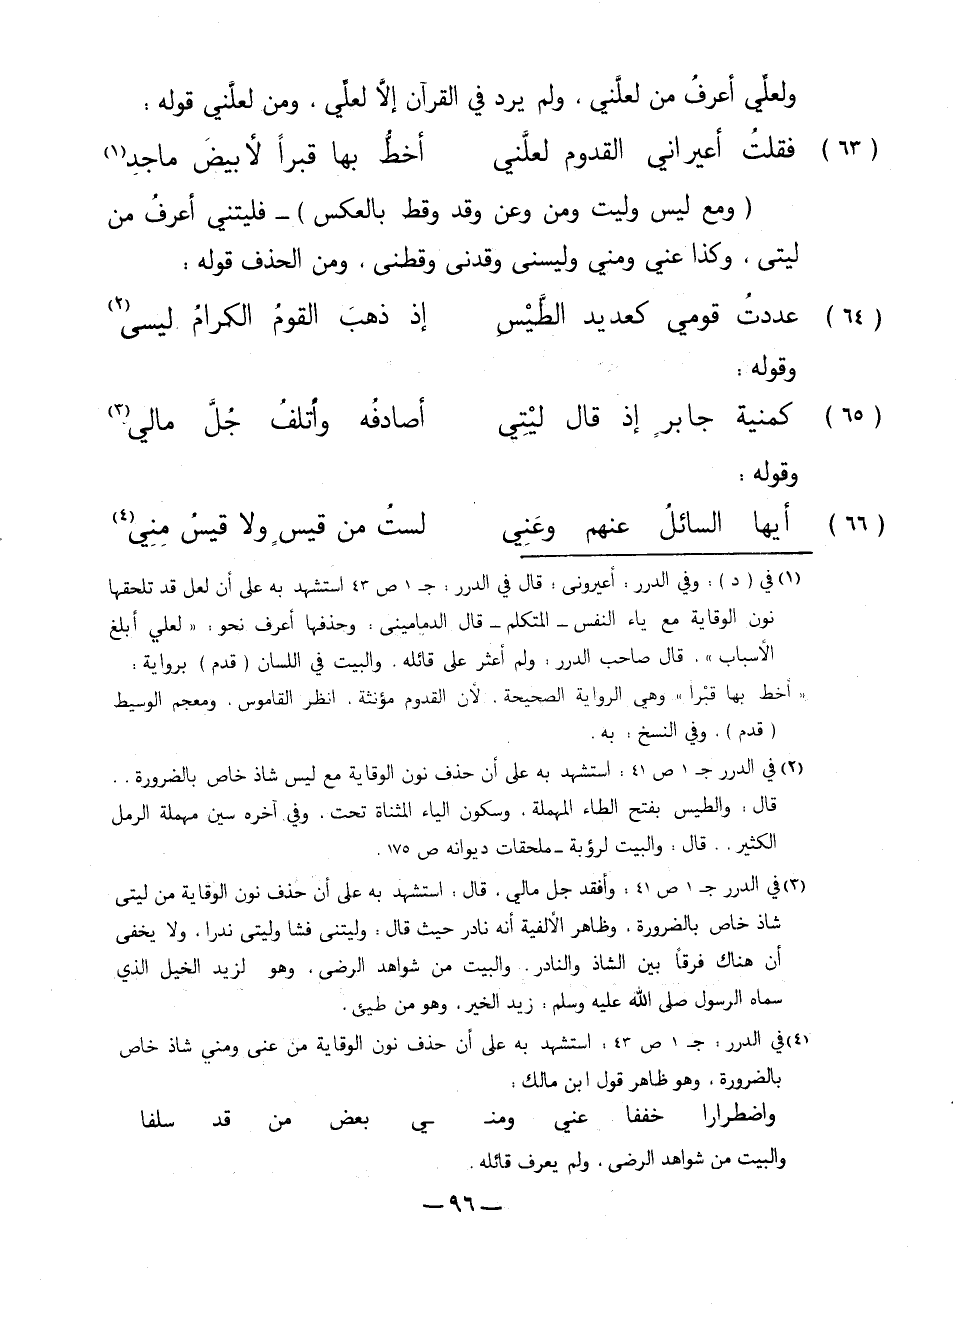 ولعلِّي أعرفُ من لعلَّني ، ولم يرد في القرآن إلاَّ لعلِّي ، ومن لعلَّني قوله :
( ٦٣ ) فقلتُ أعيراني القدوم لعلَّني أخطُّ بها قبراً لأبيضَ ماجدِ(١)
( ومع ليس وليت ومن وعن وقد وقط بالعكس ) ـ فليتني أعرفُ من
ليتى ، وكذا عني ومني وليسنى وقدنى وقطنى ، ومن الحذف قوله :
( ٦٤ ) عددتُ قومي كعديد الطَّيْسِ إذ ذهبَ القومُ الكرامُ ليسى(٢)
وقوله :
( ٦٥ ) كمنية جابرٍ إذ قال ليْتِي أصادفُه وأتلفُ جُلَّ مالي(٣)
وقوله :
( ٦٦ ) أيها السائلُ عنهم وعَنِي لستُ من قيسٍ ولا قيسُ مِنِي(٤)
(١) في ( د ) : وفي الدرر : أعيرونى : قال في الدرر : جـ ١ ص ٤٣ استشهد به على أن لعل قد تلحقها
نون الوقاية مع ياء النفس ـ المتكلم ـ قال الدمامينى : وحذفها أعرف نحو : « لعلي أبلغ
الأسباب » . قال صاحب الدرر : ولم أعثر على قائله . والبيت في اللسان ( قدم ) برواية :
« أخط بها قبْرا » وهي الرواية الصحيحة ، لأن القدوم مؤنثة . انظر القاموس . ومعجم الوسيط
( قدم ) . وفي النسخ : به .
(٢) في الدرر جـ ١ ص ٤١ : استشهد به على أن حذف نون الوقاية مع ليس شاذ خاص بالضرورة . .
قال : والطيس بفتح الطاء المهملة . وسكون الياء المثناة تحت . وفي آخره سين مهملة الرمل
الكثير . . قال : والبيت لرؤبة ـ ملحقات ديوانه ص ١٧٥ .
(٣) في الدرر جـ ١ ص ٤١ : وأفقد جل مالي . قال : استشهد به على أن حذف نون الوقاية من ليتى
شاذ خاص بالضرورة . وظاهر الألفية أنه نادر حيث قال : وليتنى فشا وليتى ندرا . ولا يخفى
أن هناك فرقاً بين الشاذ والنادر . والبيت من شواهد الرضى . وهو لزيد الخيل الذي
سماه الرسول صلى الله عليه وسلم : زيد الخير . وهو من طيئ .
(٤) في الدرر : جـ ١ ص ٤٣ : استشهد به على أن حذف نون الوقاية من عنى ومني شاذ خاص
بالضرورة . وهو ظاهر قول ابن مالك :
واضطرارا خففا عني ومنـ ـي بعض من قد سلفا
والبيت من شواهد الرضى . ولم يعرف قائله .
ـ ٩٦ ـ